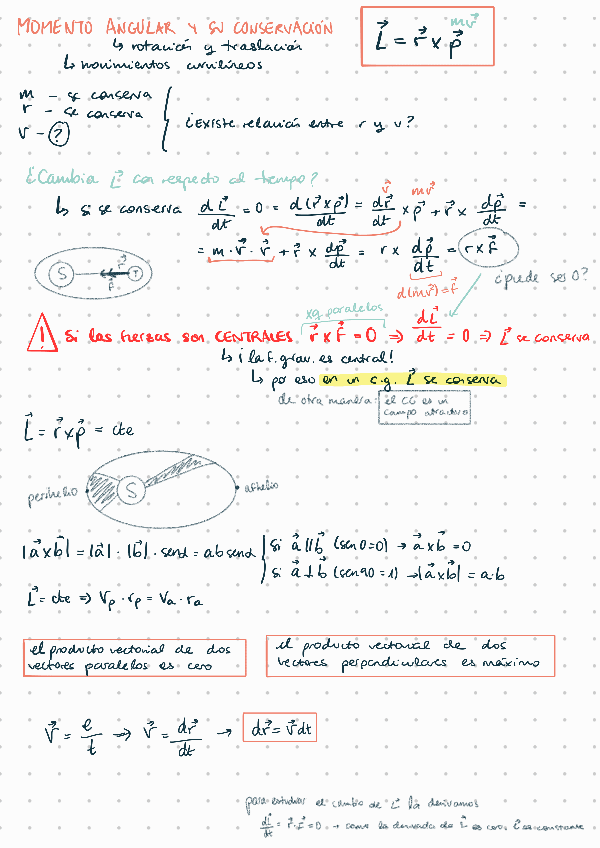 MOMENTO ANGULAR Y SU CONSERVACIÓN
↳ rotación y traslación
↳ movimientos curvilíneos
L⃗ = r⃗ x p⃗
mv⃗
m - se conserva
r - se conserva
v - ?
¿EXISTE relación entre r y v?
¿Cambia L⃗ con respecto al tiempo?
v⃗ mv⃗
↳ si se conserva dL⃗/dt = 0 = d(r⃗xp⃗)/dt = dr⃗/dt x p⃗ + r⃗ x dp⃗/dt =
= m·v⃗·v⃗ + r⃗ x dp⃗/dt = r x dp⃗/dt = r x F⃗
d(mv⃗) = F⃗
¿puede ser 0?
S r⃗ F⃗ T
xq paralelos
! Si las fuerzas son CENTRALES r⃗ x F⃗ = 0 ⇒ dL⃗/dt = 0 ⇒ L⃗ se conserva
↳ ¡la F. grav. es central!
↳ por eso en un c.g. L⃗ se conserva
de otra manera: el CG es un
campo atractivo
L⃗ = r⃗ x p⃗ = cte
perihelio S afhelio
|a⃗xb⃗| = |a⃗|·|b⃗|·senα = ab senα
si a⃗ ∥ b⃗ (sen0=0) → a⃗ x b⃗ = 0
si a⃗ ⊥ b⃗ (sen90=1) → |a⃗ x b⃗| = a·b
L⃗ = cte ⇒ Vp · rp = Va · ra
el producto vectorial de dos
vectores paralelos es cero
el producto vectorial de dos
vectores perpendiculares es máximo
V⃗ = e/t → V⃗ = dr⃗/dt → dr⃗ = v⃗dt
para estudiar el cambio de L⃗ la derivamos
dL⃗/dt = r⃗·F⃗ = 0 → como la derivada de L⃗ es cero, L⃗ es constante